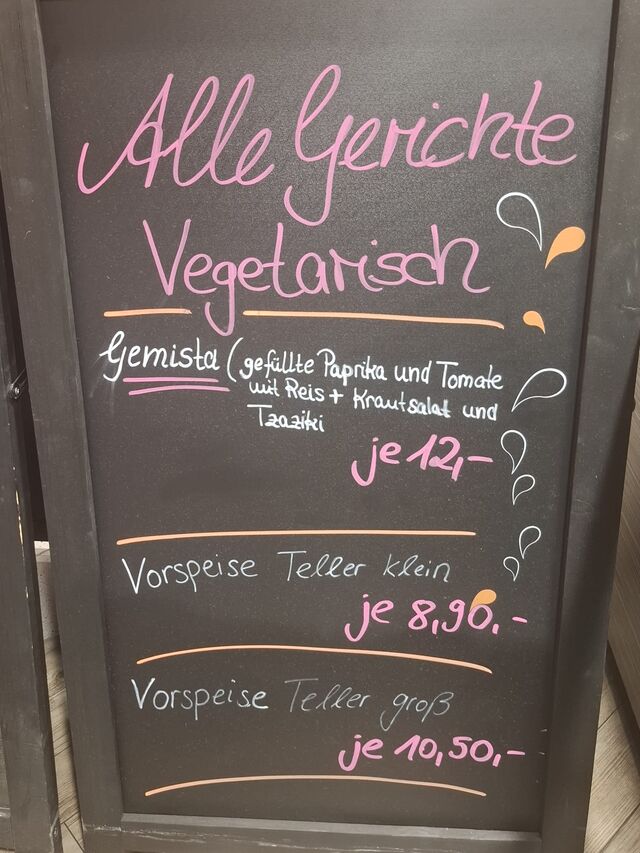 Alle Gerichte
Vegetarisch
Gemista (gefüllte Paprika und Tomate
mit Reis + Krautsalat und
Tzaziki
je 12,-
Vorspeise Teller klein
je 8,90,-
Vorspeise Teller groß
je 10,50,-